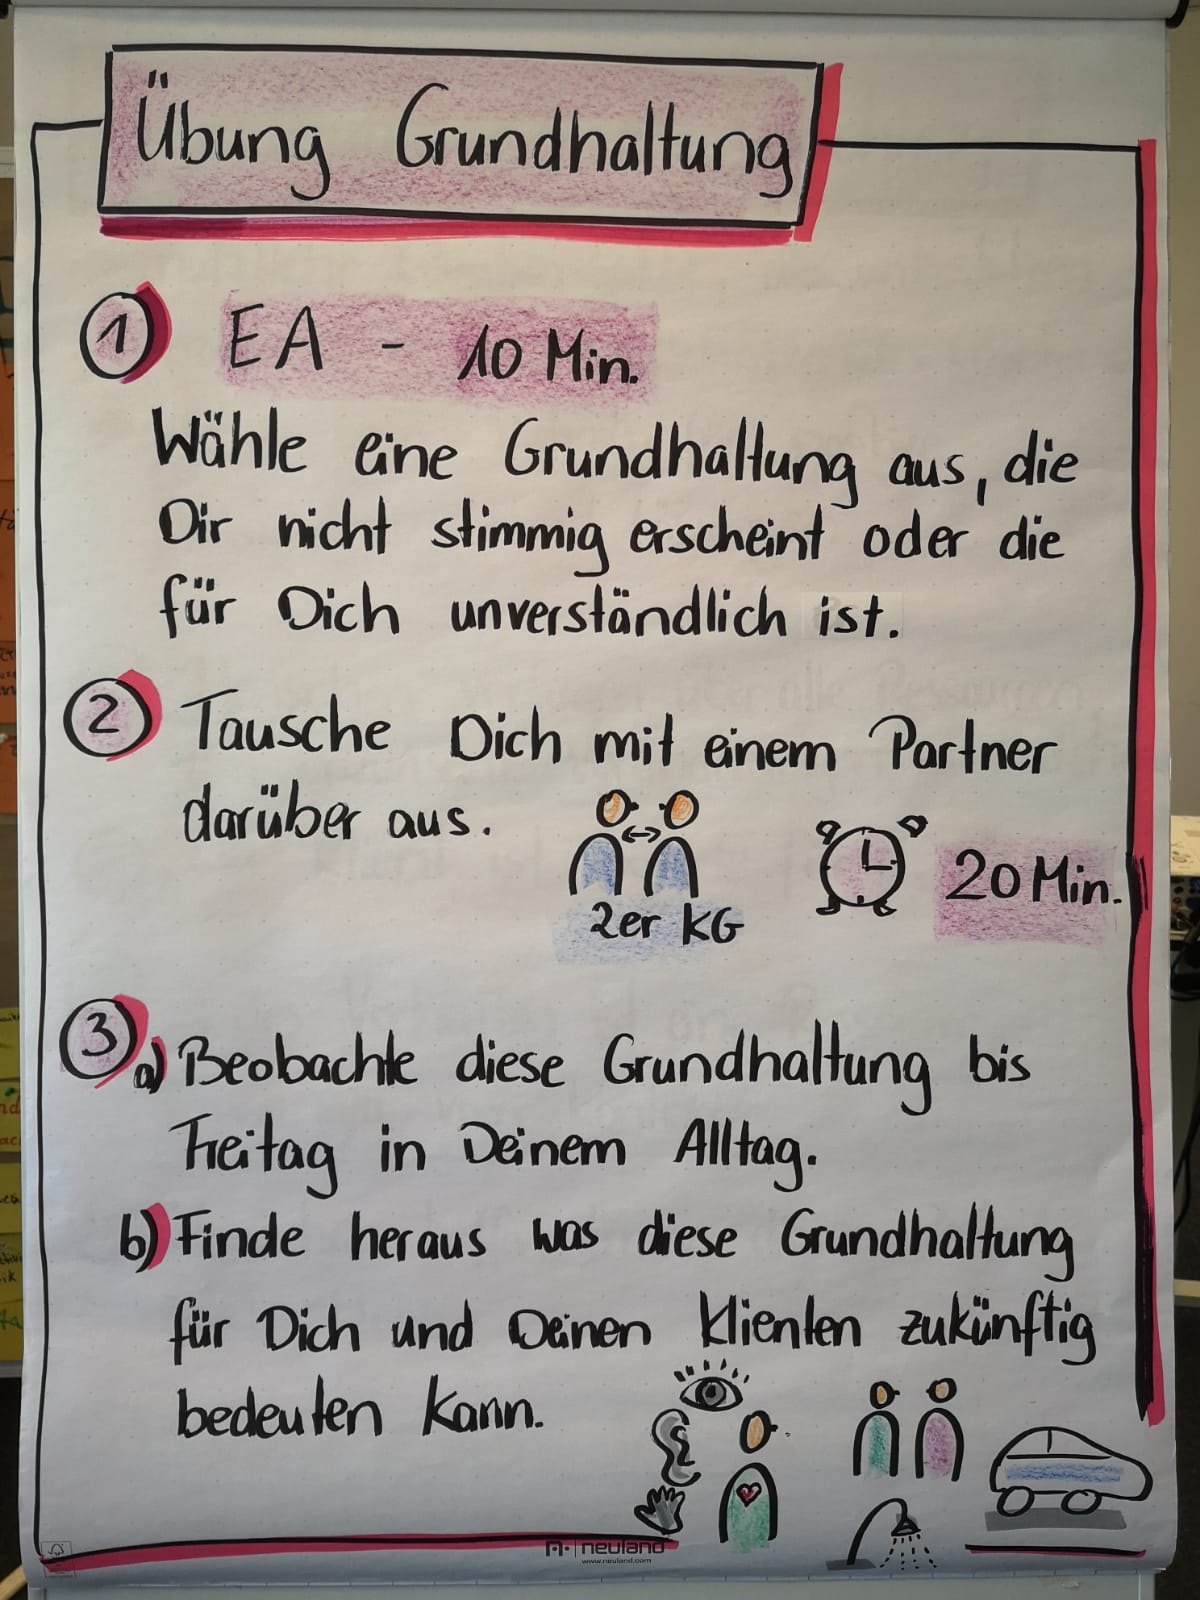 Übung Grundhaltung
1 EA - 10 Min.
Wähle eine Grundhaltung aus, die
Dir nicht stimmig erscheint oder die
für Dich unverständlich ist.
2 Tausche Dich mit einem Partner
darüber aus.
20 Min.
2er KG
3 a) Beobachte diese Grundhaltung bis
Freitag in Deinem Alltag.
b) Finde heraus was diese Grundhaltung
für Dich und Deinen Klienten zukünftig
bedeuten kann.
neuland
www.neuland.com